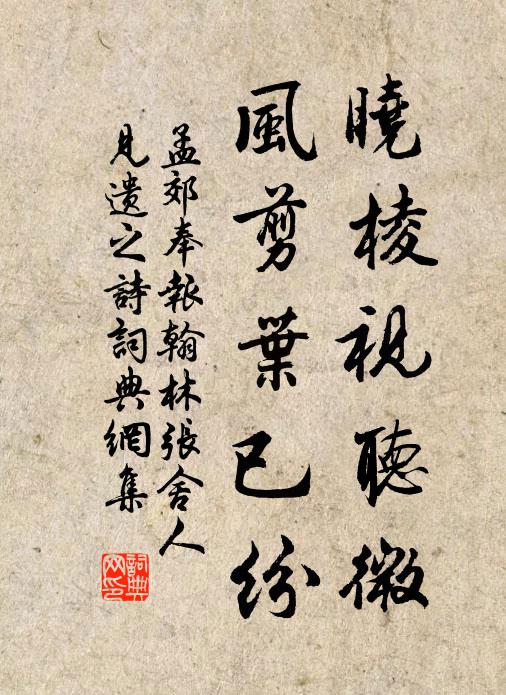 曉棱視聽微
風剪葉已紛
孟郊奉報翰林張舍人
見遺之詩詞典網集
詞典
网印